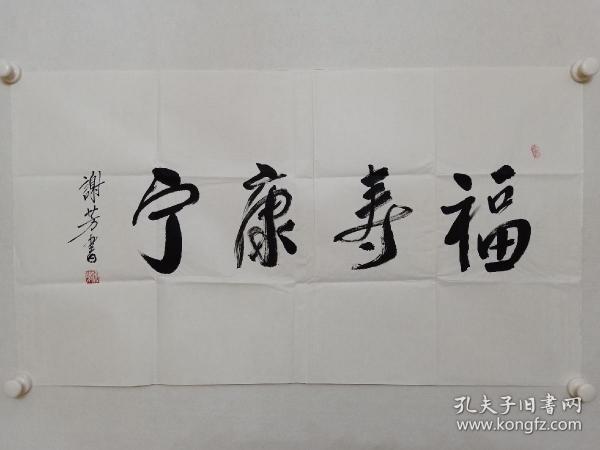 福寿康宁
謝芳書
孔夫子旧書网
www.kongfz.com